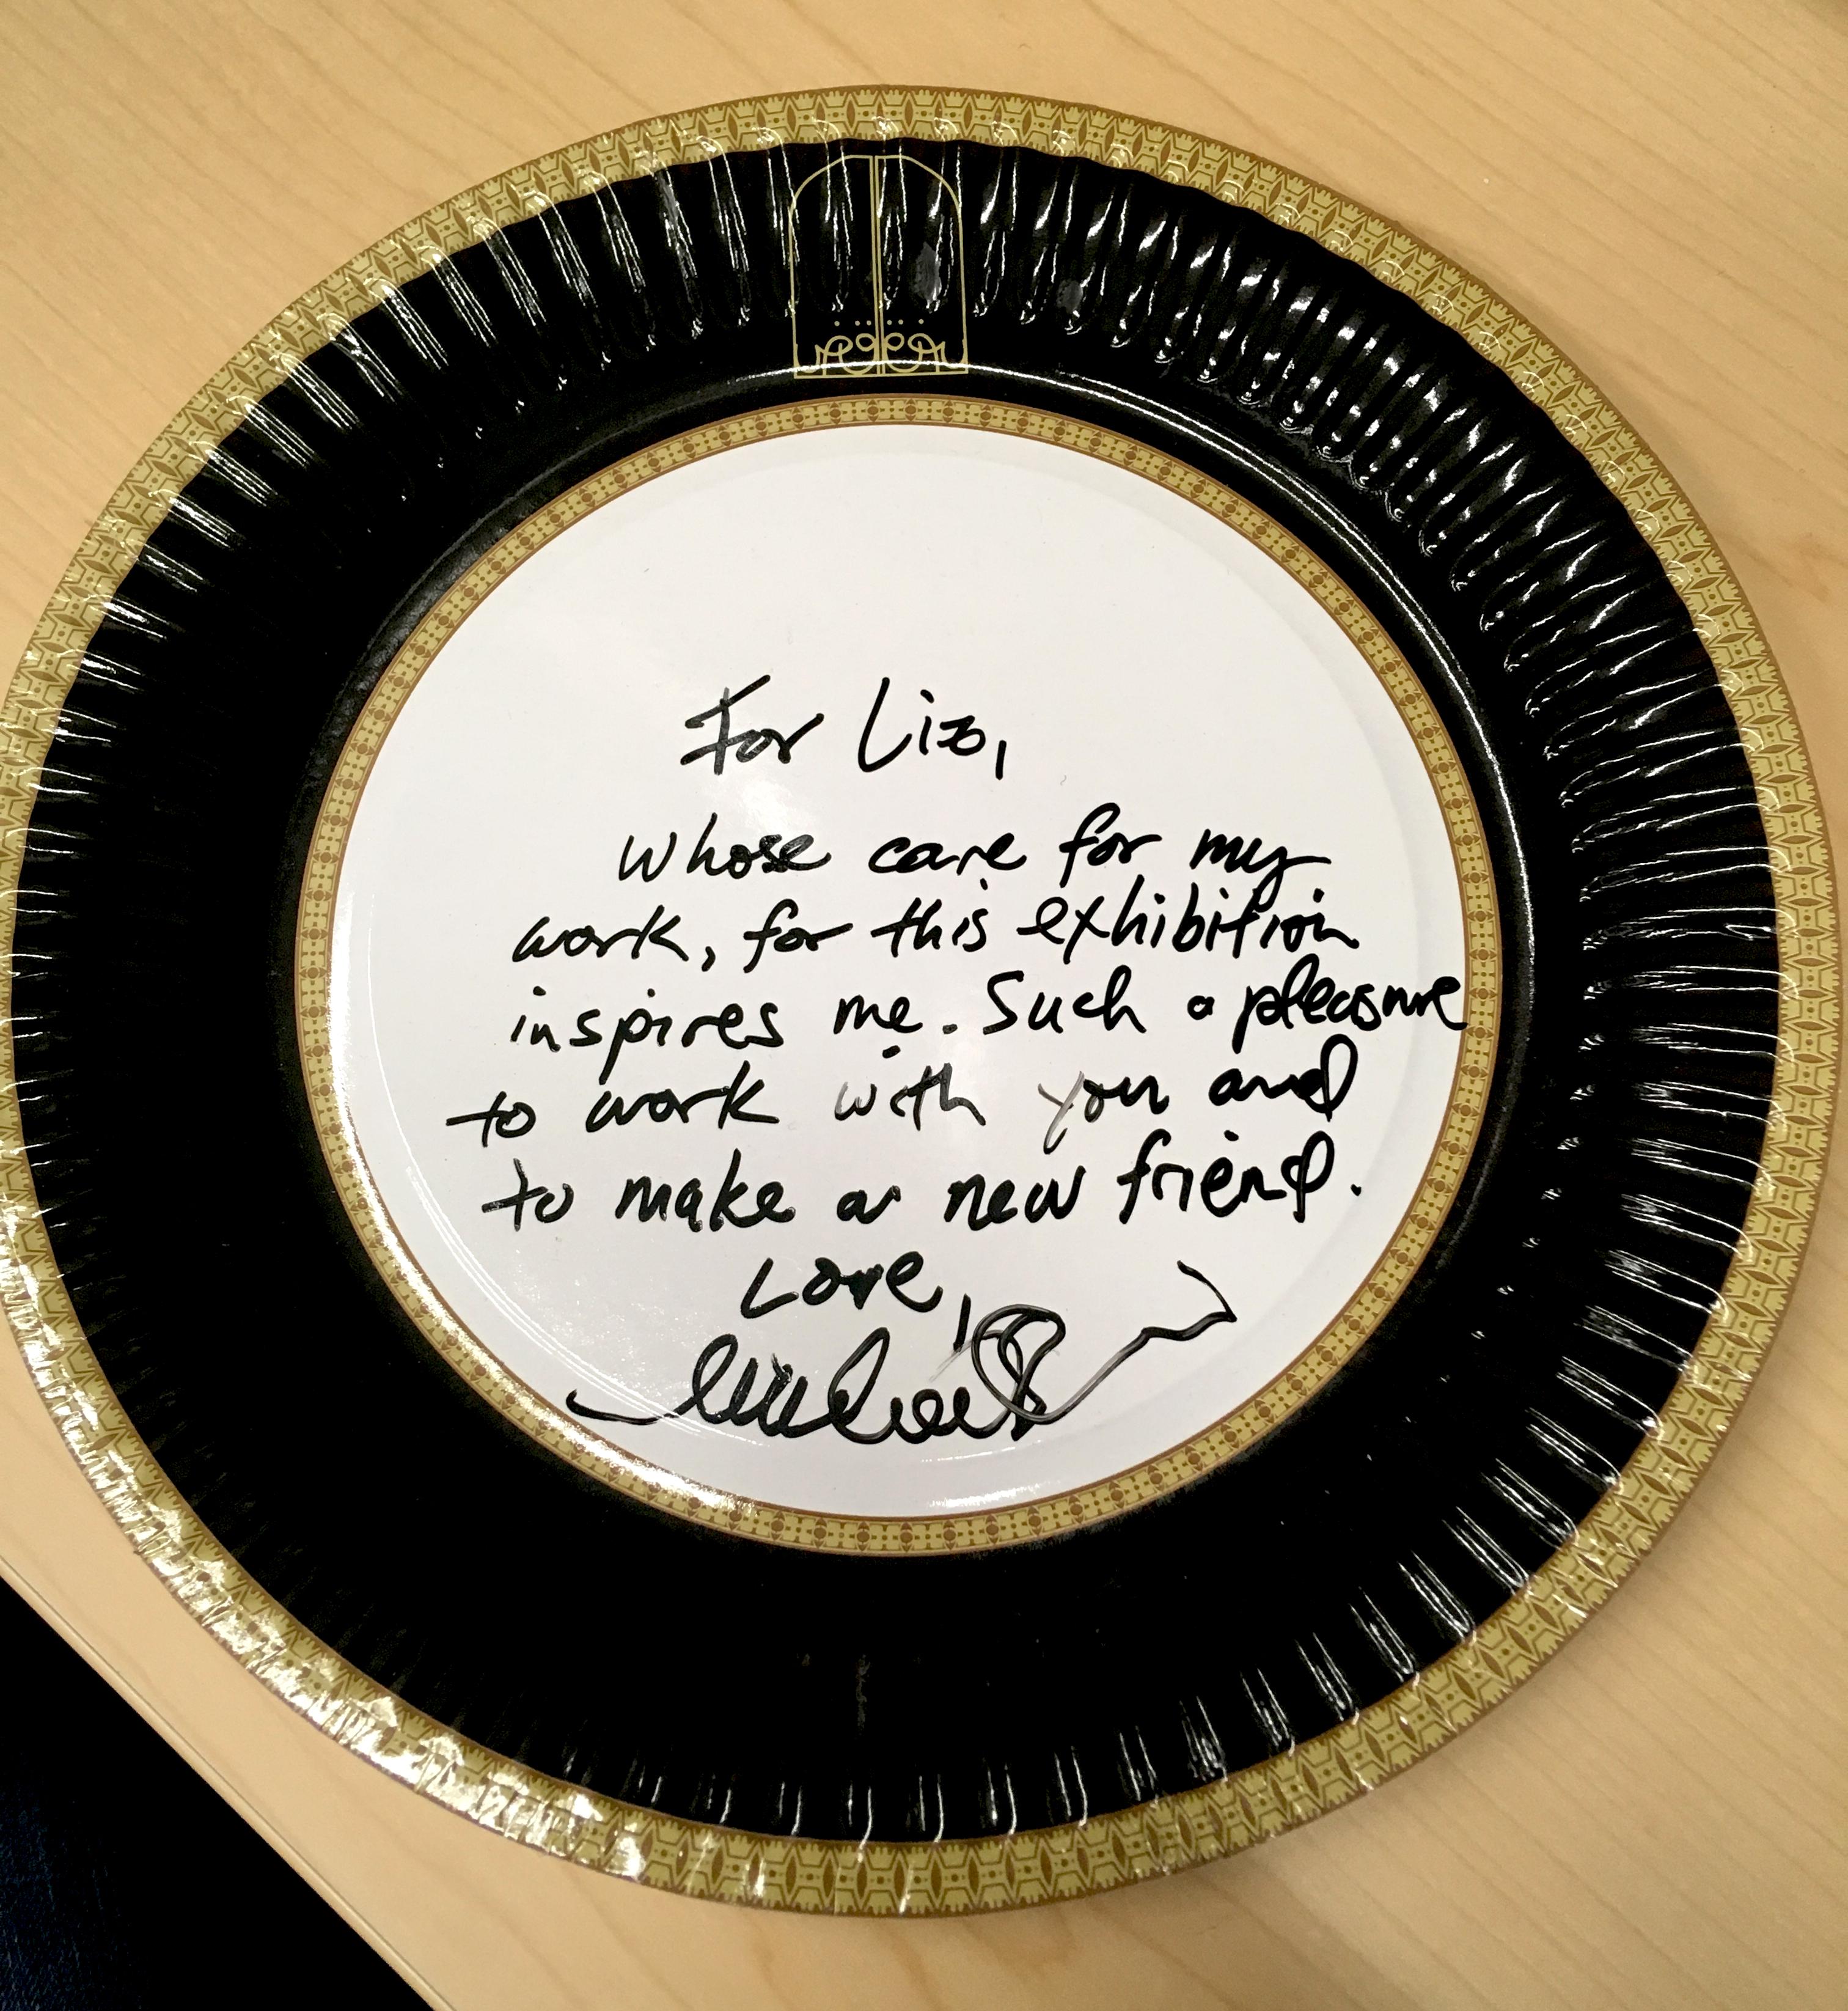 For Liz,
whose care for my
work, for this exhibition
inspires me. Such a pleasure
to work with you and
to make a new friend.
Love,